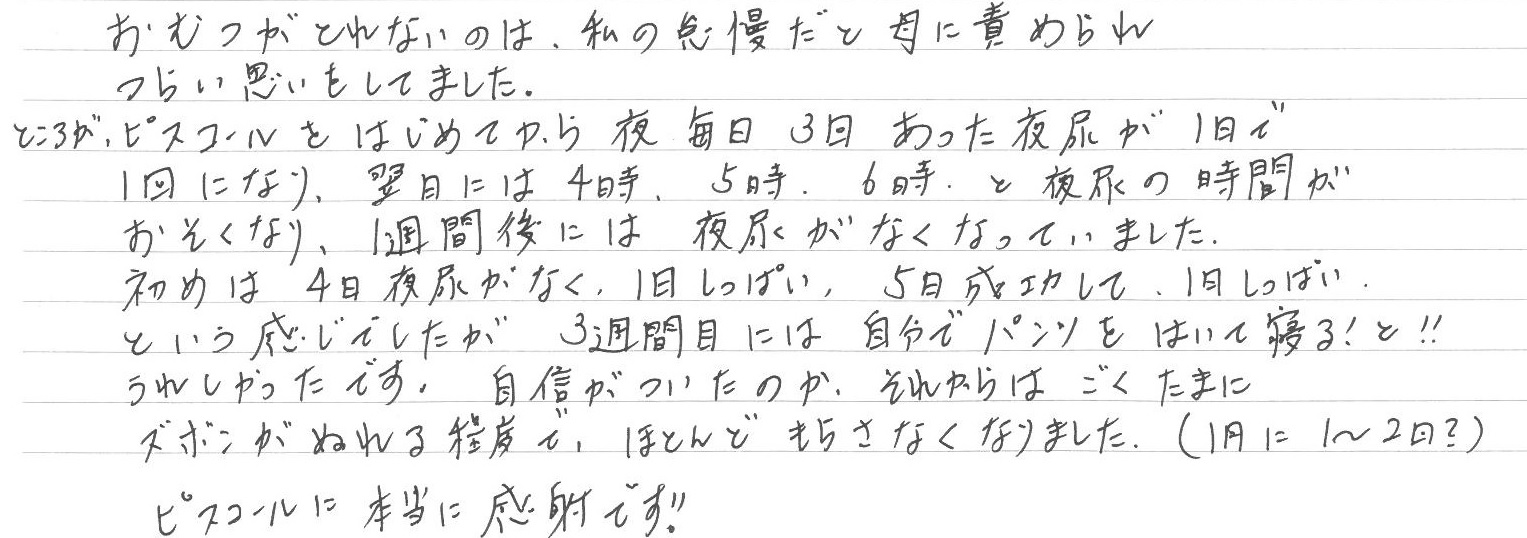 おむつがとれないのは、私の怠慢だと母に責められ
つらい思いをしてました。
ところが、ピスコールをはじめてから夜毎日3回あった夜尿が1日で
1回になり、翌日には4時、5時、6時、と夜尿の時間が
おそくなり、1週間後には夜尿がなくなっていました。
初めは4日夜尿がなく、1日しっぱい、5日成功して、1日しっぱい、
という感じでしたが 3週間目には自分でパンツをはいて寝る!と!!
うれしかったです。自信がついたのか、それからはごくたまに
ズボンがぬれる程度で、ほとんどもらさなくなりました。(1月に1~2回?)
ピスコールに本当に感謝です!!